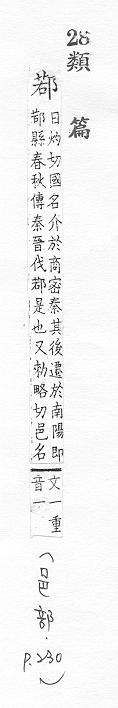 28 類篇
鄀
日灼切國名介於商密秦其後遷於南陽即
鄀縣春秋傳秦晉伐鄀是也又勑略切邑名
文一重
音一
(邑部·P.230)